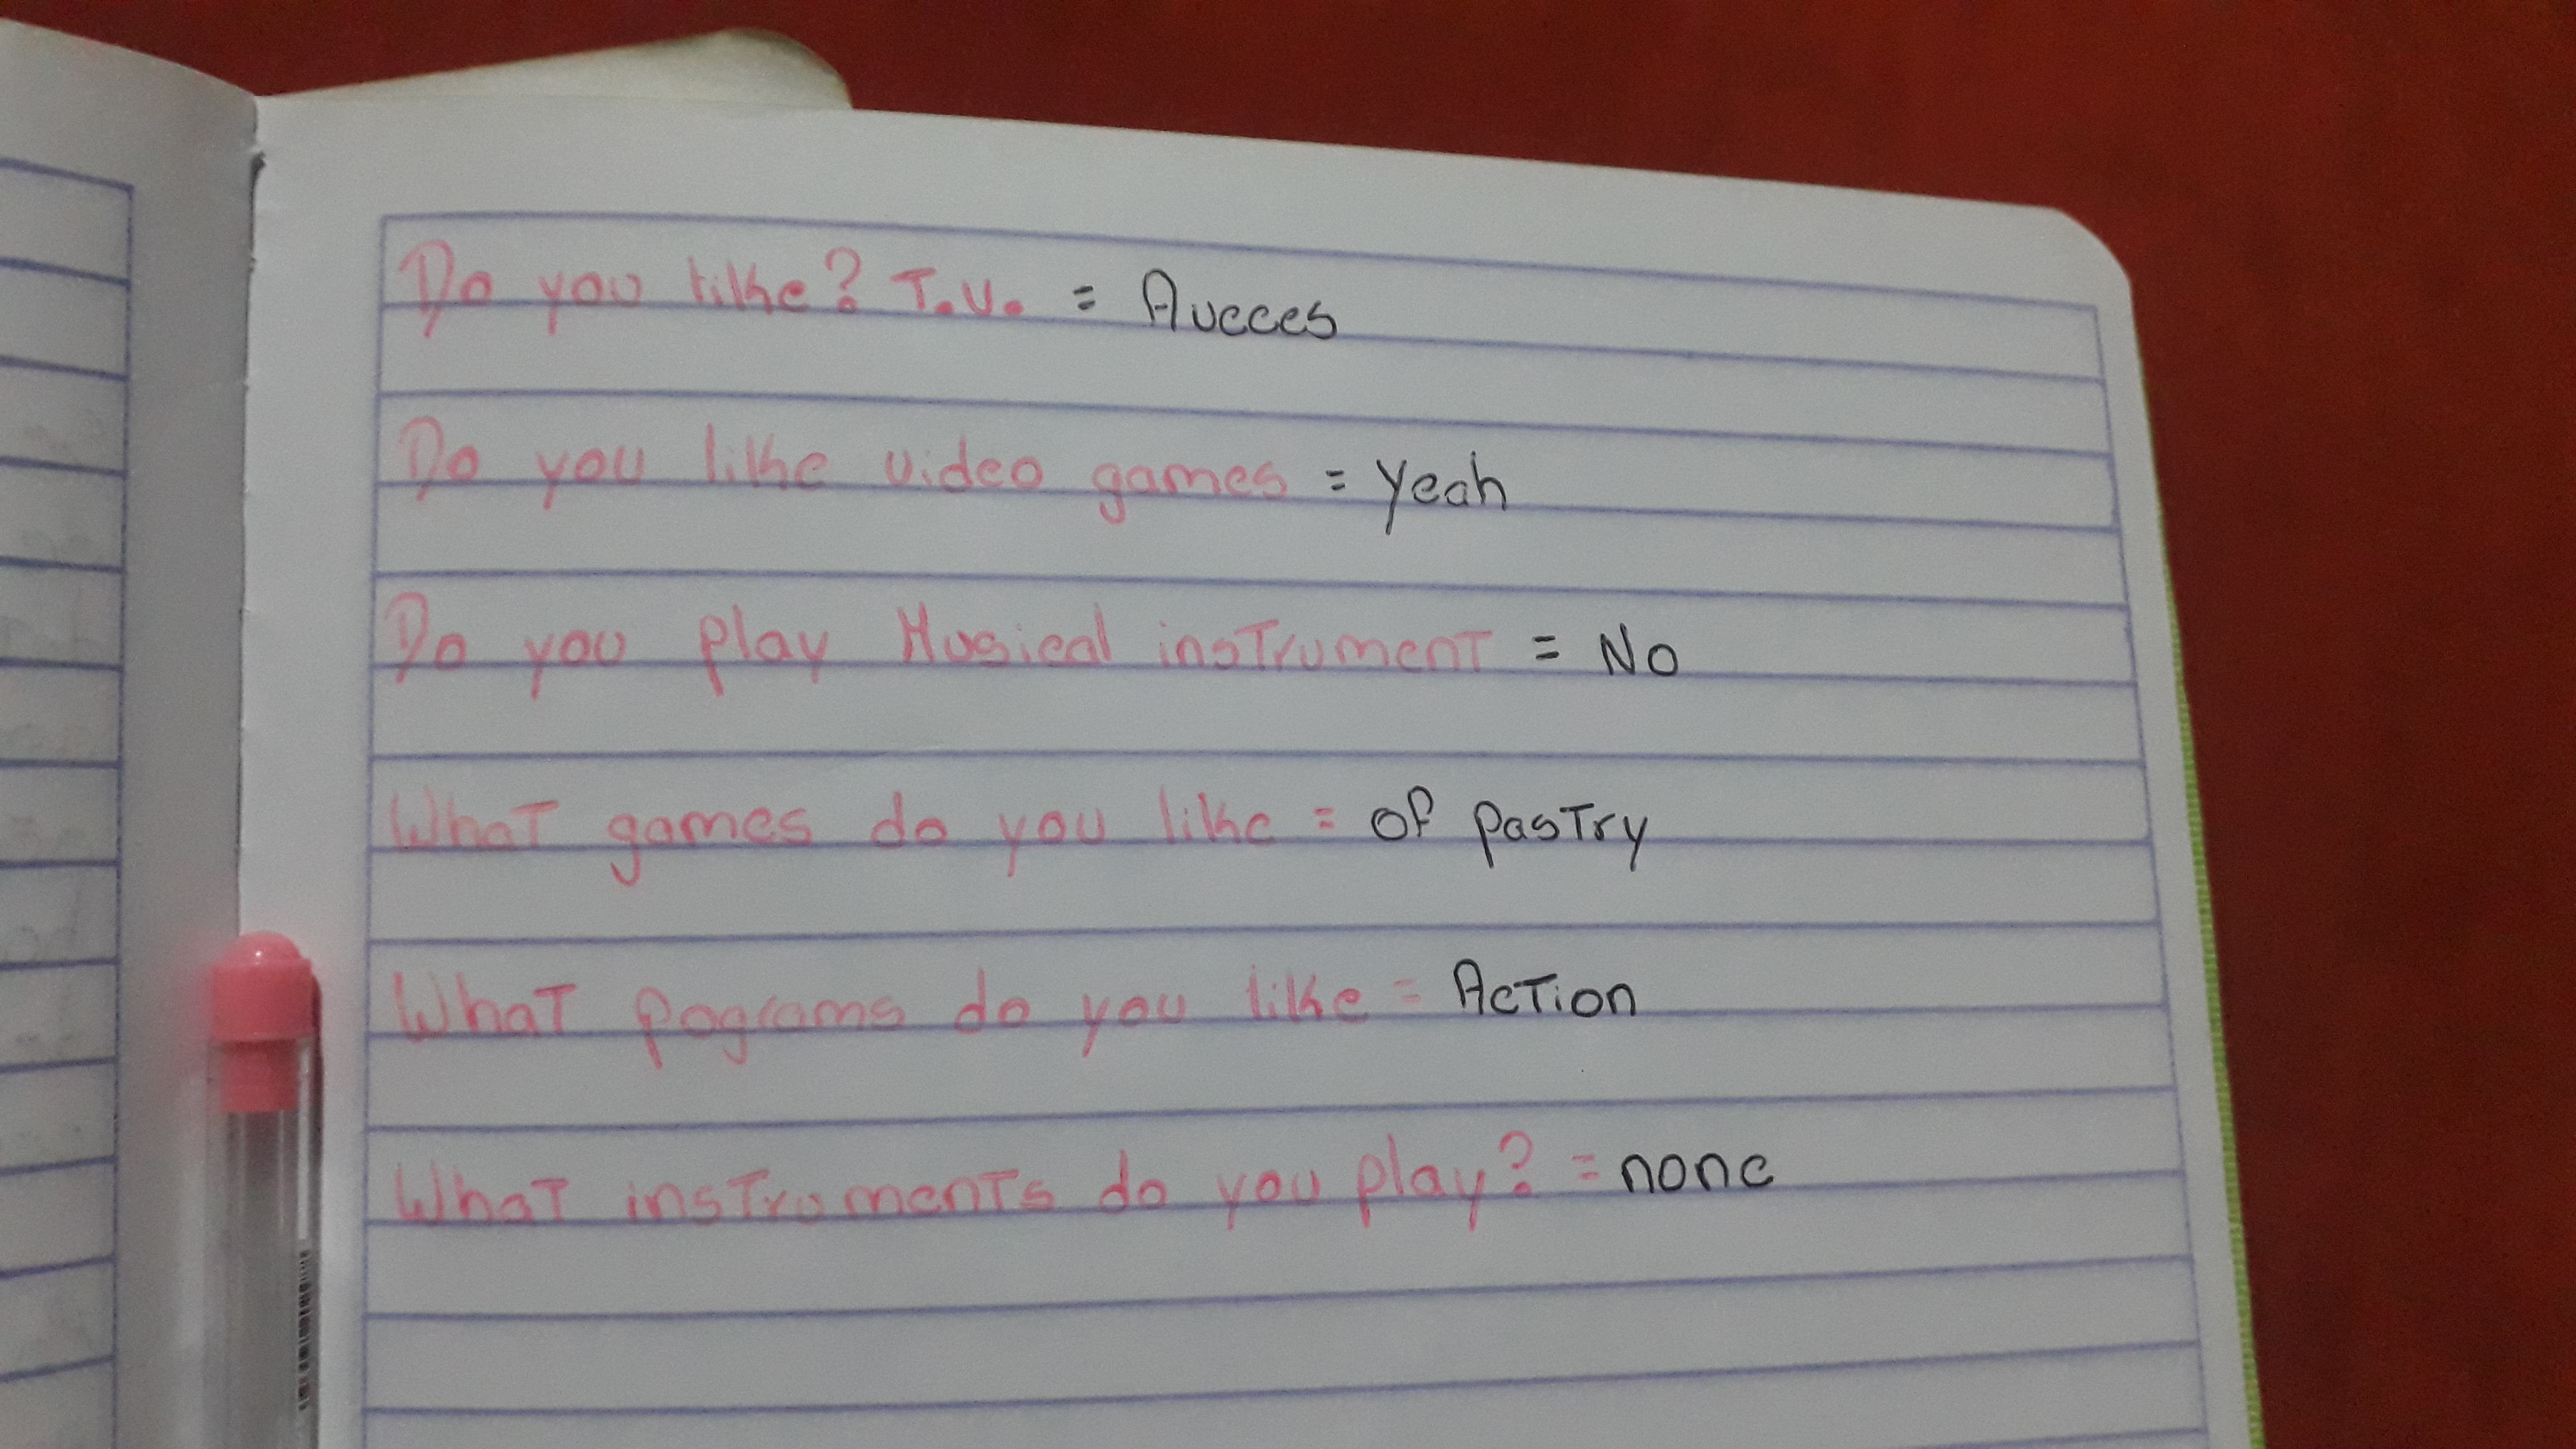 Do you like? T.V. = Aucces
Do you like video games = yeah
Do you play Musical instrument = No
What games do you like = of pastry
What pograms do you like = Action
What instruments do you play? = none